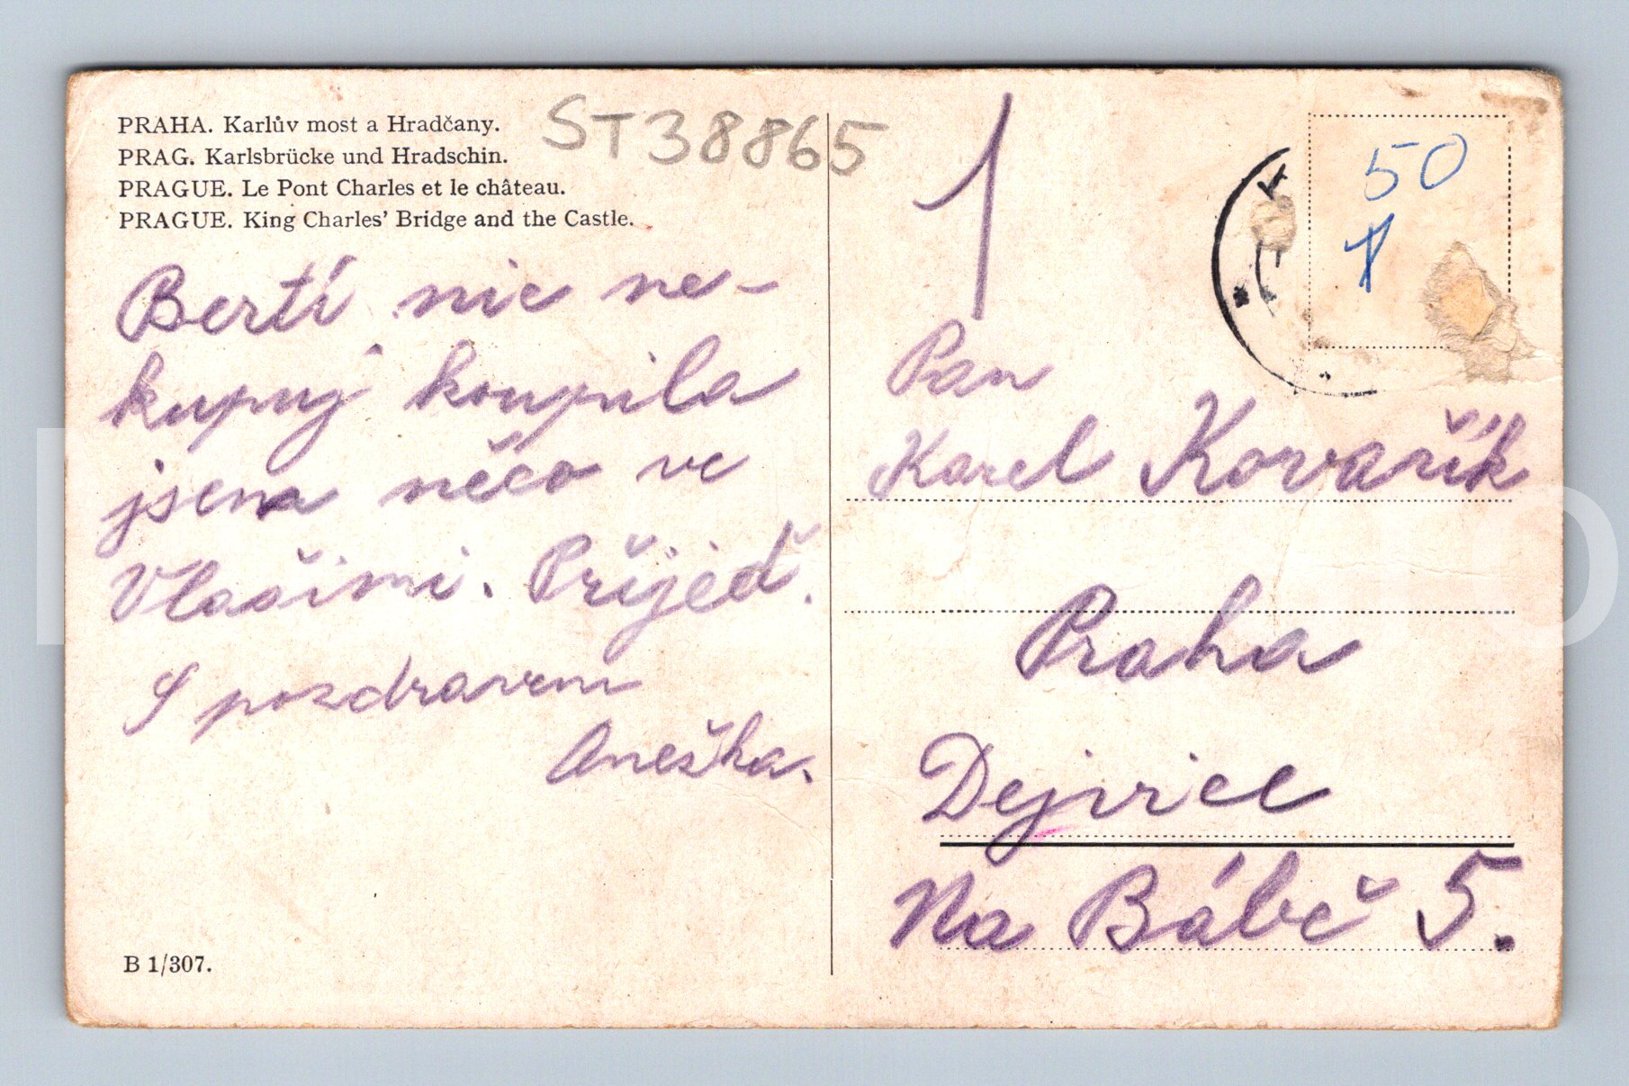 PRAHA. Karlův most a Hradčany.
PRAG. Karlsbrücke und Hradschin.
PRAGUE. Le Pont Charles et le château.
PRAGUE. King Charles' Bridge and the Castle.
ST38865
Bertí nic ne-
kupuj koupila
jsem něco ve
Vlašimi. Přijeď.
S pozdravem
Anežka.
B 1/307.
1
50
1
Pan
Karel Kovařík
Praha
Dejvice
Na Bábě 5.